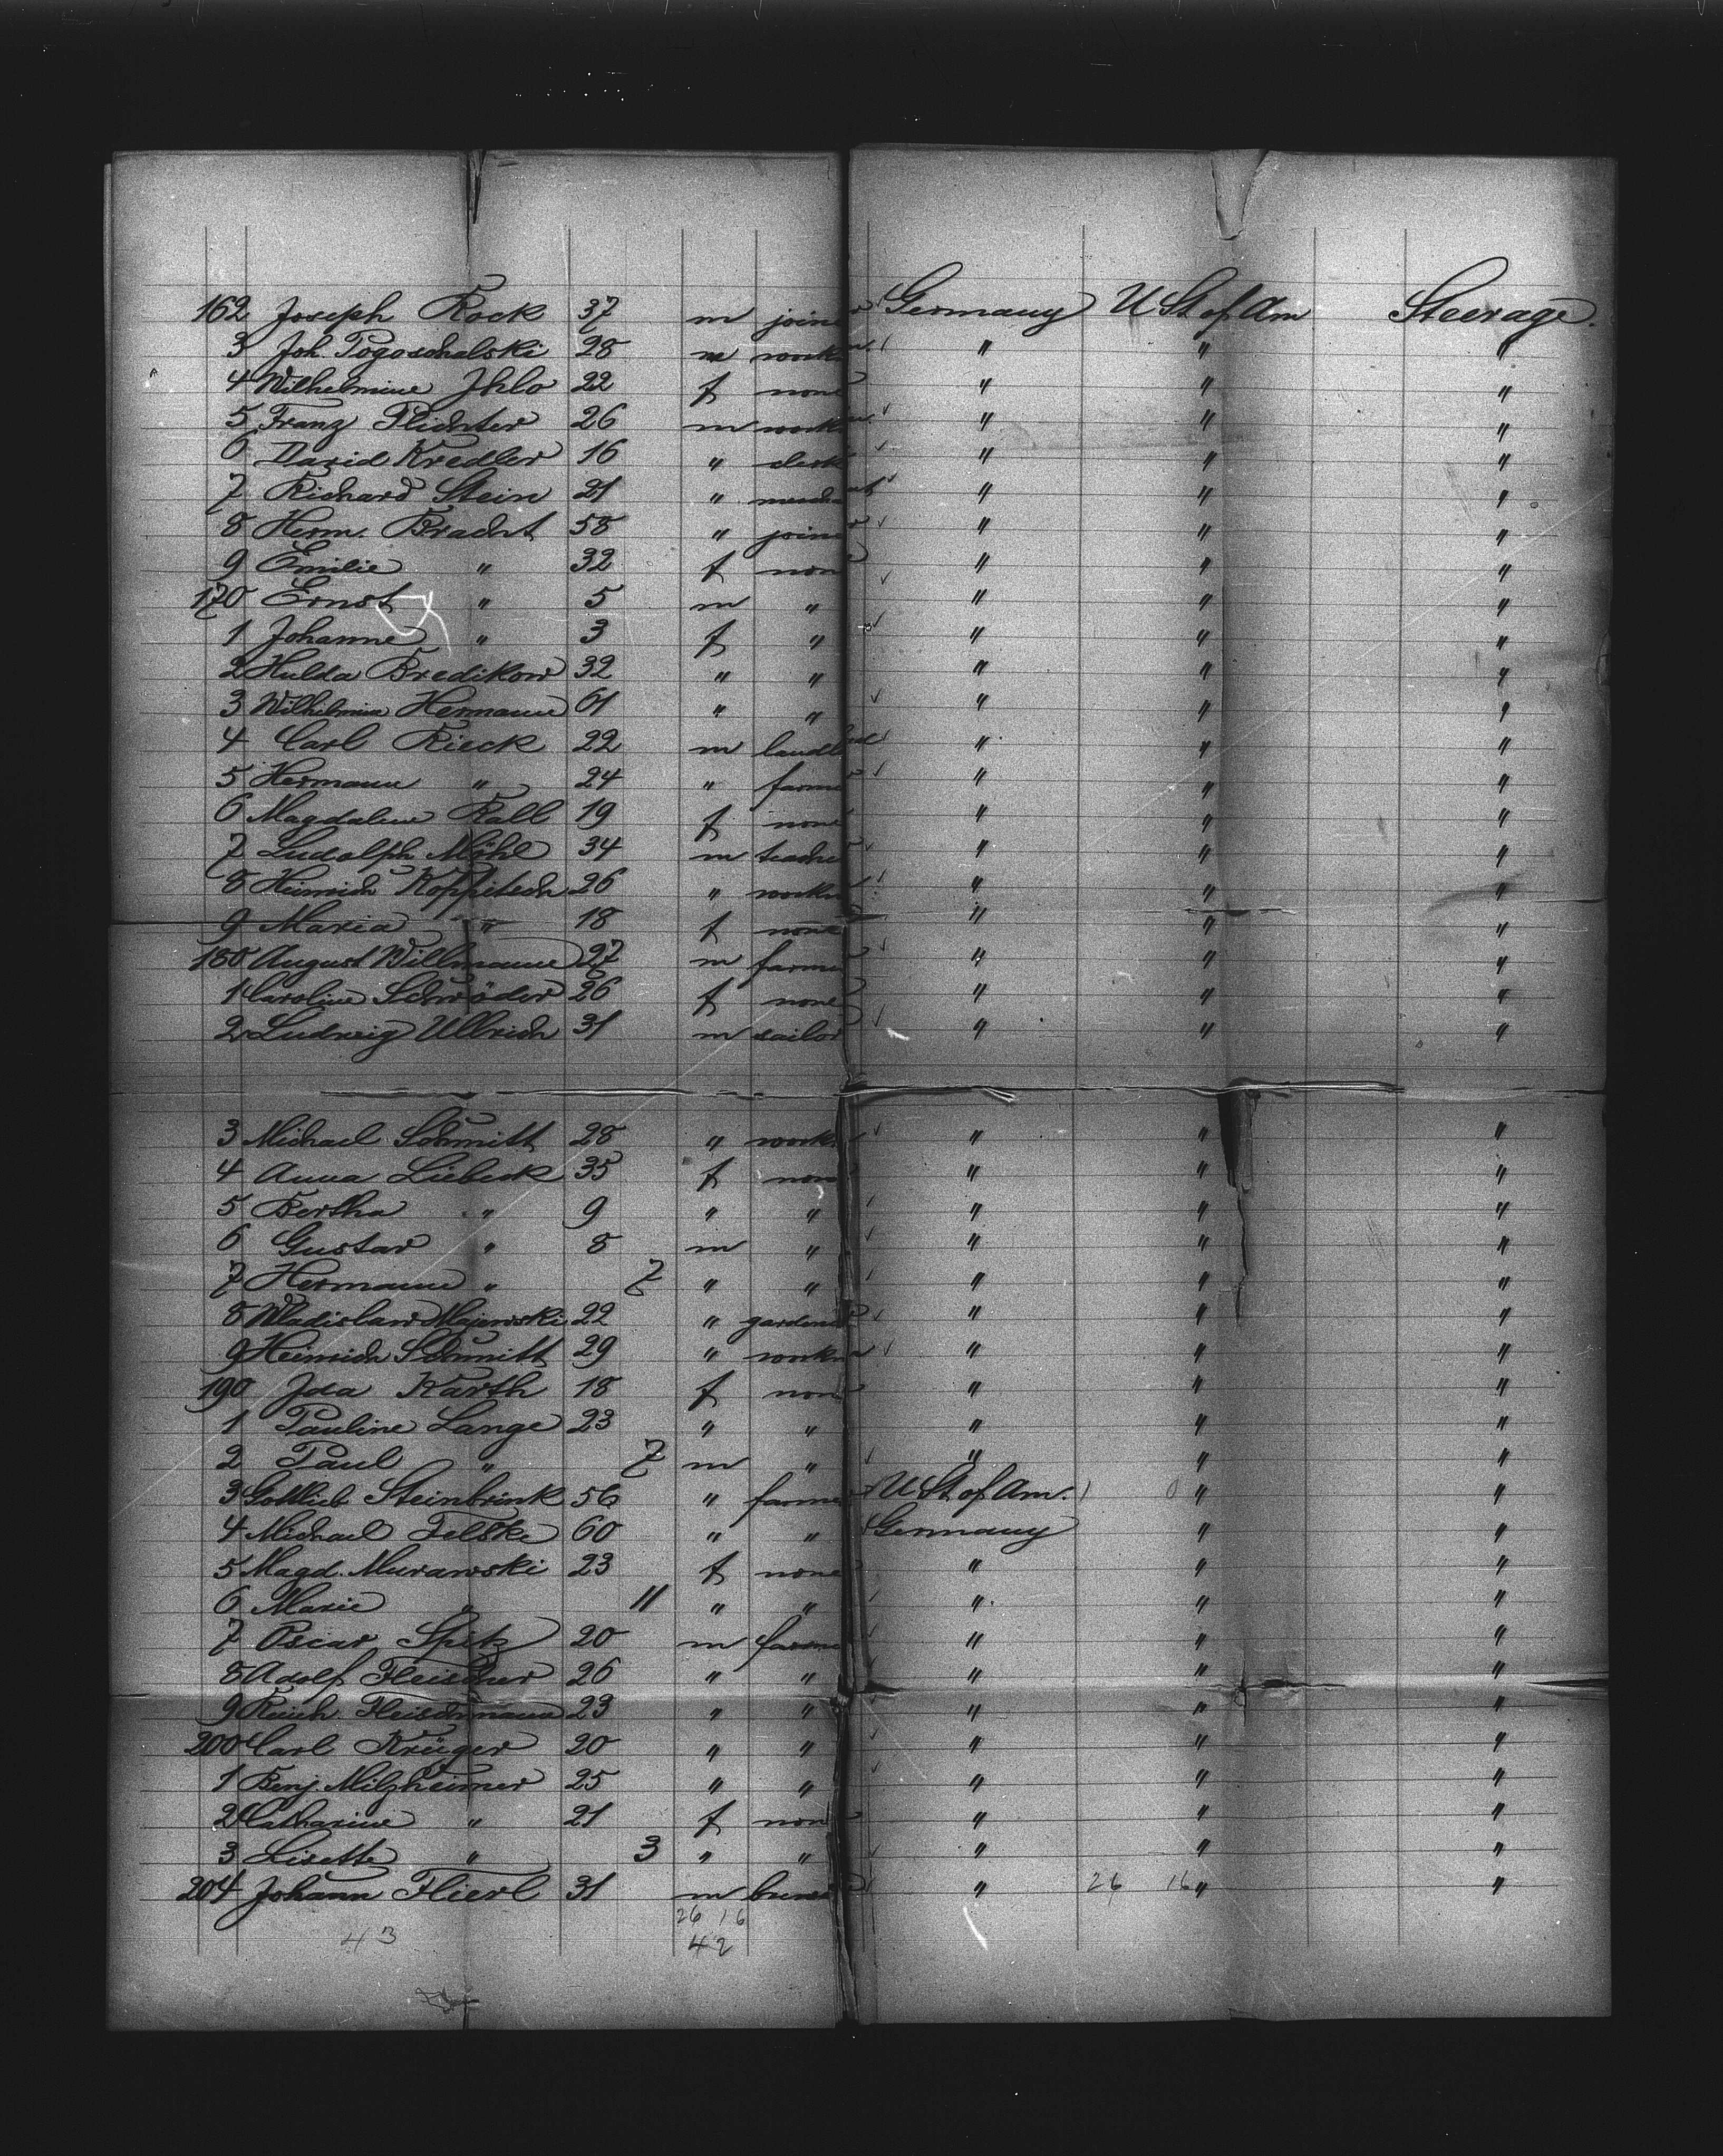 162 Joseph Rock 37 m joiner Germany U St of Am Steerage.
3 Joh. Pogoschalski 28 m workm. " " "
4 Wilhelmine Ihlo 22 f none " " "
5 Franz Flichter 26 m workm. " " "
6 David Kredler 16 " clerk " " "
7 Richard Stein 21 " merchant " " "
8 Herm. Bracht 58 " joiner " " "
9 Emilie " 32 f none " " "
170 Ernst " 5 m " " " "
1 Johanne " 3 f " " " "
2 Hulda Bredikow 32 " " " " "
3 Wilhelmine Hermann 61 " " " " "
4 Carl Rieck 22 m " " "
5 Hermann " 24 " farmer " " "
6 Magdalene Rall 19 f none " " "
7 Ludolph Möhl 34 m teacher " " "
8 Heinrich Koppitsch 26 " workm " " "
9 Maria " 18 f none " " "
180 August Willmann 27 m farmer " " "
1 Caroline Schröder 26 f none " " "
2 Ludwig Ullrich 31 m sailor " " "
3 Michael Schmitt 28 " workm " " "
4 Anna Liebeck 35 f none " " "
5 Bertha " 9 " " " " "
6 Gustav " 8 m " " " "
7 Hermann " 7 " " " " "
8 Wladislaw Majewski 22 " gardener " " "
9 Heinrich Schmitt 29 " workm " " "
190 Ida Karth 18 f none " " "
1 Pauline Lange 23 " " " " "
2 Paul " 7 m " " " "
3 Gottlieb Steinbrink 56 " farmer U St of Am. " "
4 Michael Felske 60 " " Germany " "
5 Magd. Murawski 23 f none " " "
6 Marie " 11 " " " " "
7 Oscar Spitz 20 m farmer " " "
8 Adolf Fleischer 26 " " " " "
9 Fleischmann 23 " " " " "
200 Carl Krüger 20 " " " " "
1 Benj. Milzheimer 25 " " " " "
2 Catharine " 21 f none " " "
3 Lisette " 3 " " " " "
204 Johann Flierl 31 m brewer " 26 16 " "
26 16
43 42